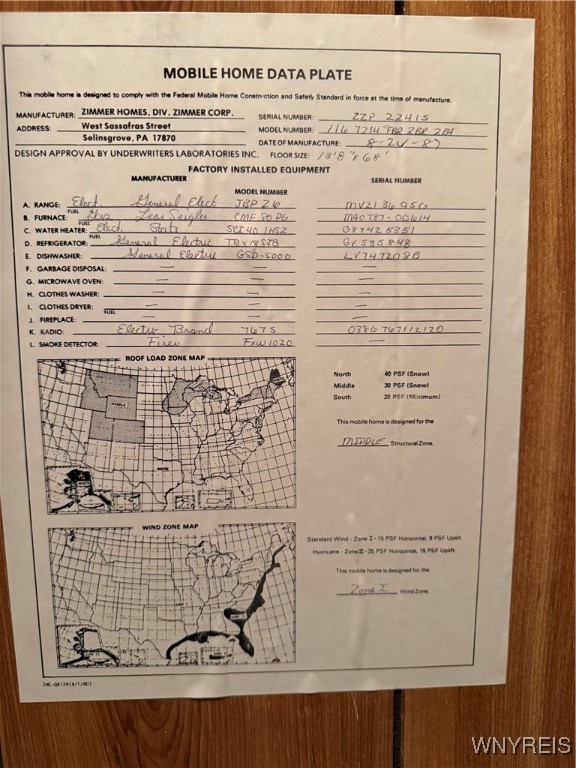 MOBILE HOME DATA PLATE
This mobile home is designed to comply with the Federal Mobile Home Construction and Safety Standard in force at the time of manufacture.
MANUFACTURER: ZIMMER HOMES, DIV. ZIMMER CORP. SERIAL NUMBER: ZZP 22415
ADDRESS: West Sassafras Street MODEL NUMBER: 116 7214 FBR 2BR 2BA
Selinsgrove, PA 17870 DATE OF MANUFACTURE: 8-24-87
DESIGN APPROVAL BY UNDERWRITERS LABORATORIES INC. FLOOR SIZE: 13'8" x 68'
FACTORY INSTALLED EQUIPMENT
MANUFACTURER MODEL NUMBER SERIAL NUMBER
A. RANGE: Elect. General Elect JBP26 MV213695G
B. FURNACE: FUEL Gas Lear Seigler CMF 80 PG MAO787-00614
C. WATER HEATER: FUEL Elect.
D. REFRIGERATOR: FUEL General Electric
E. DISHWASHER: General Electric GSD-5000 LV747208B
F. GARBAGE DISPOSAL: — — —
G. MICROWAVE OVEN: — — —
H. CLOTHES WASHER: — — —
I. CLOTHES DRYER: — — —
J. FIREPLACE: FUEL — — —
K. RADIO: Electro Brand 7675 0386767112120
L. SMOKE DETECTOR: Firex FXW1020 —
ROOF LOAD ZONE MAP
North 40 PSF (Snow)
Middle 30 PSF (Snow)
South 20 PSF (Minimum)
This mobile home is designed for the
MIDDLE Structural Zone.
MIDDLE
SOUTH
WIND ZONE MAP
Standard Wind - Zone I - 15 PSF Horizontal, 9 PSF Uplift
Hurricane - Zone II - 25 PSF Horizontal, 15 PSF Uplift
This mobile home is designed for the
Zone I Wind Zone.
WNYREIS